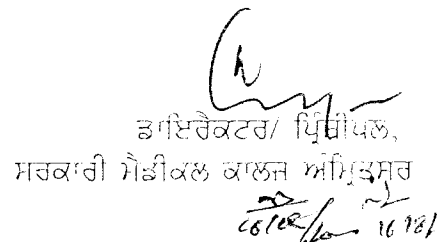 ਡਾਇਰੈਕਟਰ/ ਪ੍ਰਿੰਸੀਪਲ,
ਸਰਕਾਰੀ ਮੈਡੀਕਲ ਕਾਲਜ ਅੰਮ੍ਰਿਤਸਰ